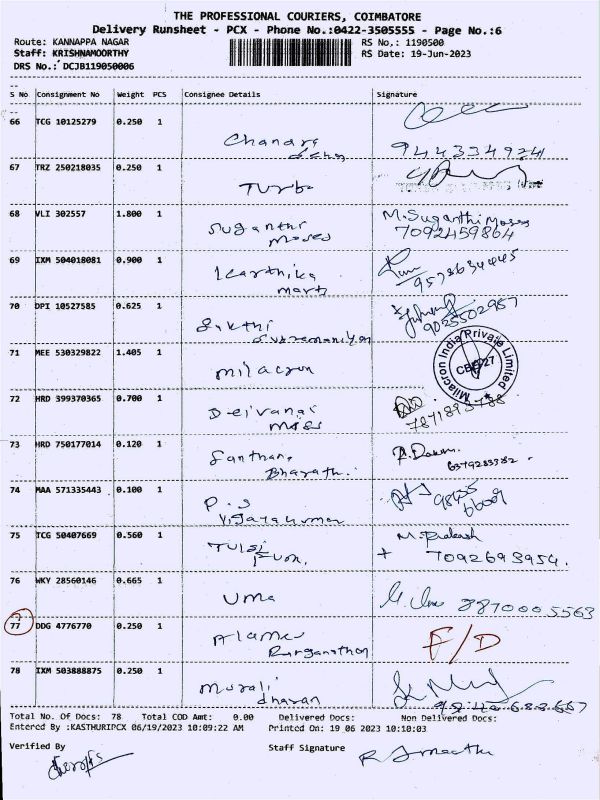 THE PROFESSIONAL COURIERS, COIMBATORE
Delivery Runsheet - PCX - Phone No.:0422-3505555 - Page No.:6
Route: KANNAPPA NAGAR RS No,: 1190500
Staff: KRISHNAMOORTHY RS Date: 19-Jun-2023
DRS No.: DCJB119050006
S No Consignment No Weight PCS Consignee Details Signature
66 TCG 10125279 0.250 1
Chandra
9443334924
67 TRZ 250218035 0.250 1
Turbo
68 VLI 302557 1.800 1 M.Suganthi Moses
Suganthi 7092459864
Moses
69 IXM 504018081 0.900 1
Karthika 9578634445
70 DPI 10527585 0.625 1
Sakthi 9025502957
Sivaramaniyan
71 MEE 530329822 1.405 1 Milacron India Private Limited
Milacron
72 HRD 399370365 0.700 1
Deivanai
73 HRD 750177014 0.120 1
Santhana 6379283382.
Bharathi.
74 MAA 571335443 0.100 1 98435
P.S 66009
Vijayakumar
75 TCG 50407669 0.560 1 M. Prakash
Tulsi + 7092693954.
76 WKY 28560146 0.665 1
Uma 8870005563
77 DDG 4776770 0.250 1 F/D
Alamelu
Ranganathan
78 IXM 503888875 0.250 1
Murali
dharan
Total No. Of Docs: 78 Total COD Amt: 0.00 Delivered Docs: Non Delivered Docs:
Entered By :KASTHURIPCX 06/19/2023 10:09:22 AM Printed On: 19 06 2023 10:10:03
Verified By Staff Signature